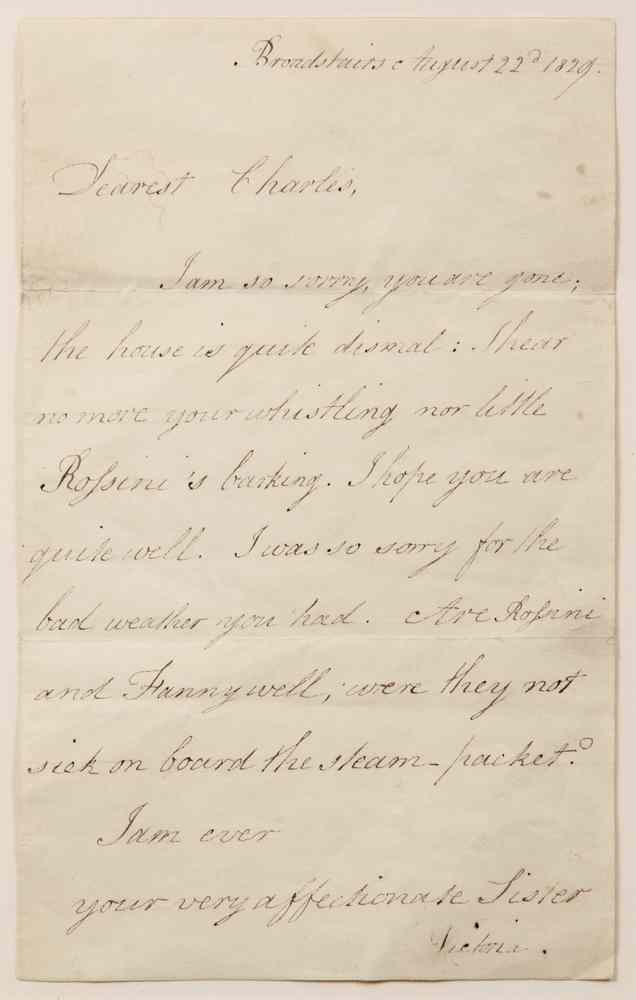 Broadstairs August 22d 1829.
Dearest Charles,
I am so sorry, you are gone;
the house is quite dismal: I hear
no more your whistling nor little
Roſsini's barking. I hope you are
quite well. I was so sorry for the
bad weather you had. Are Roſsini
and Fanny well; were they not
sick on board the steam-packet?
I am ever
your very affectionate Sister
Victoria.